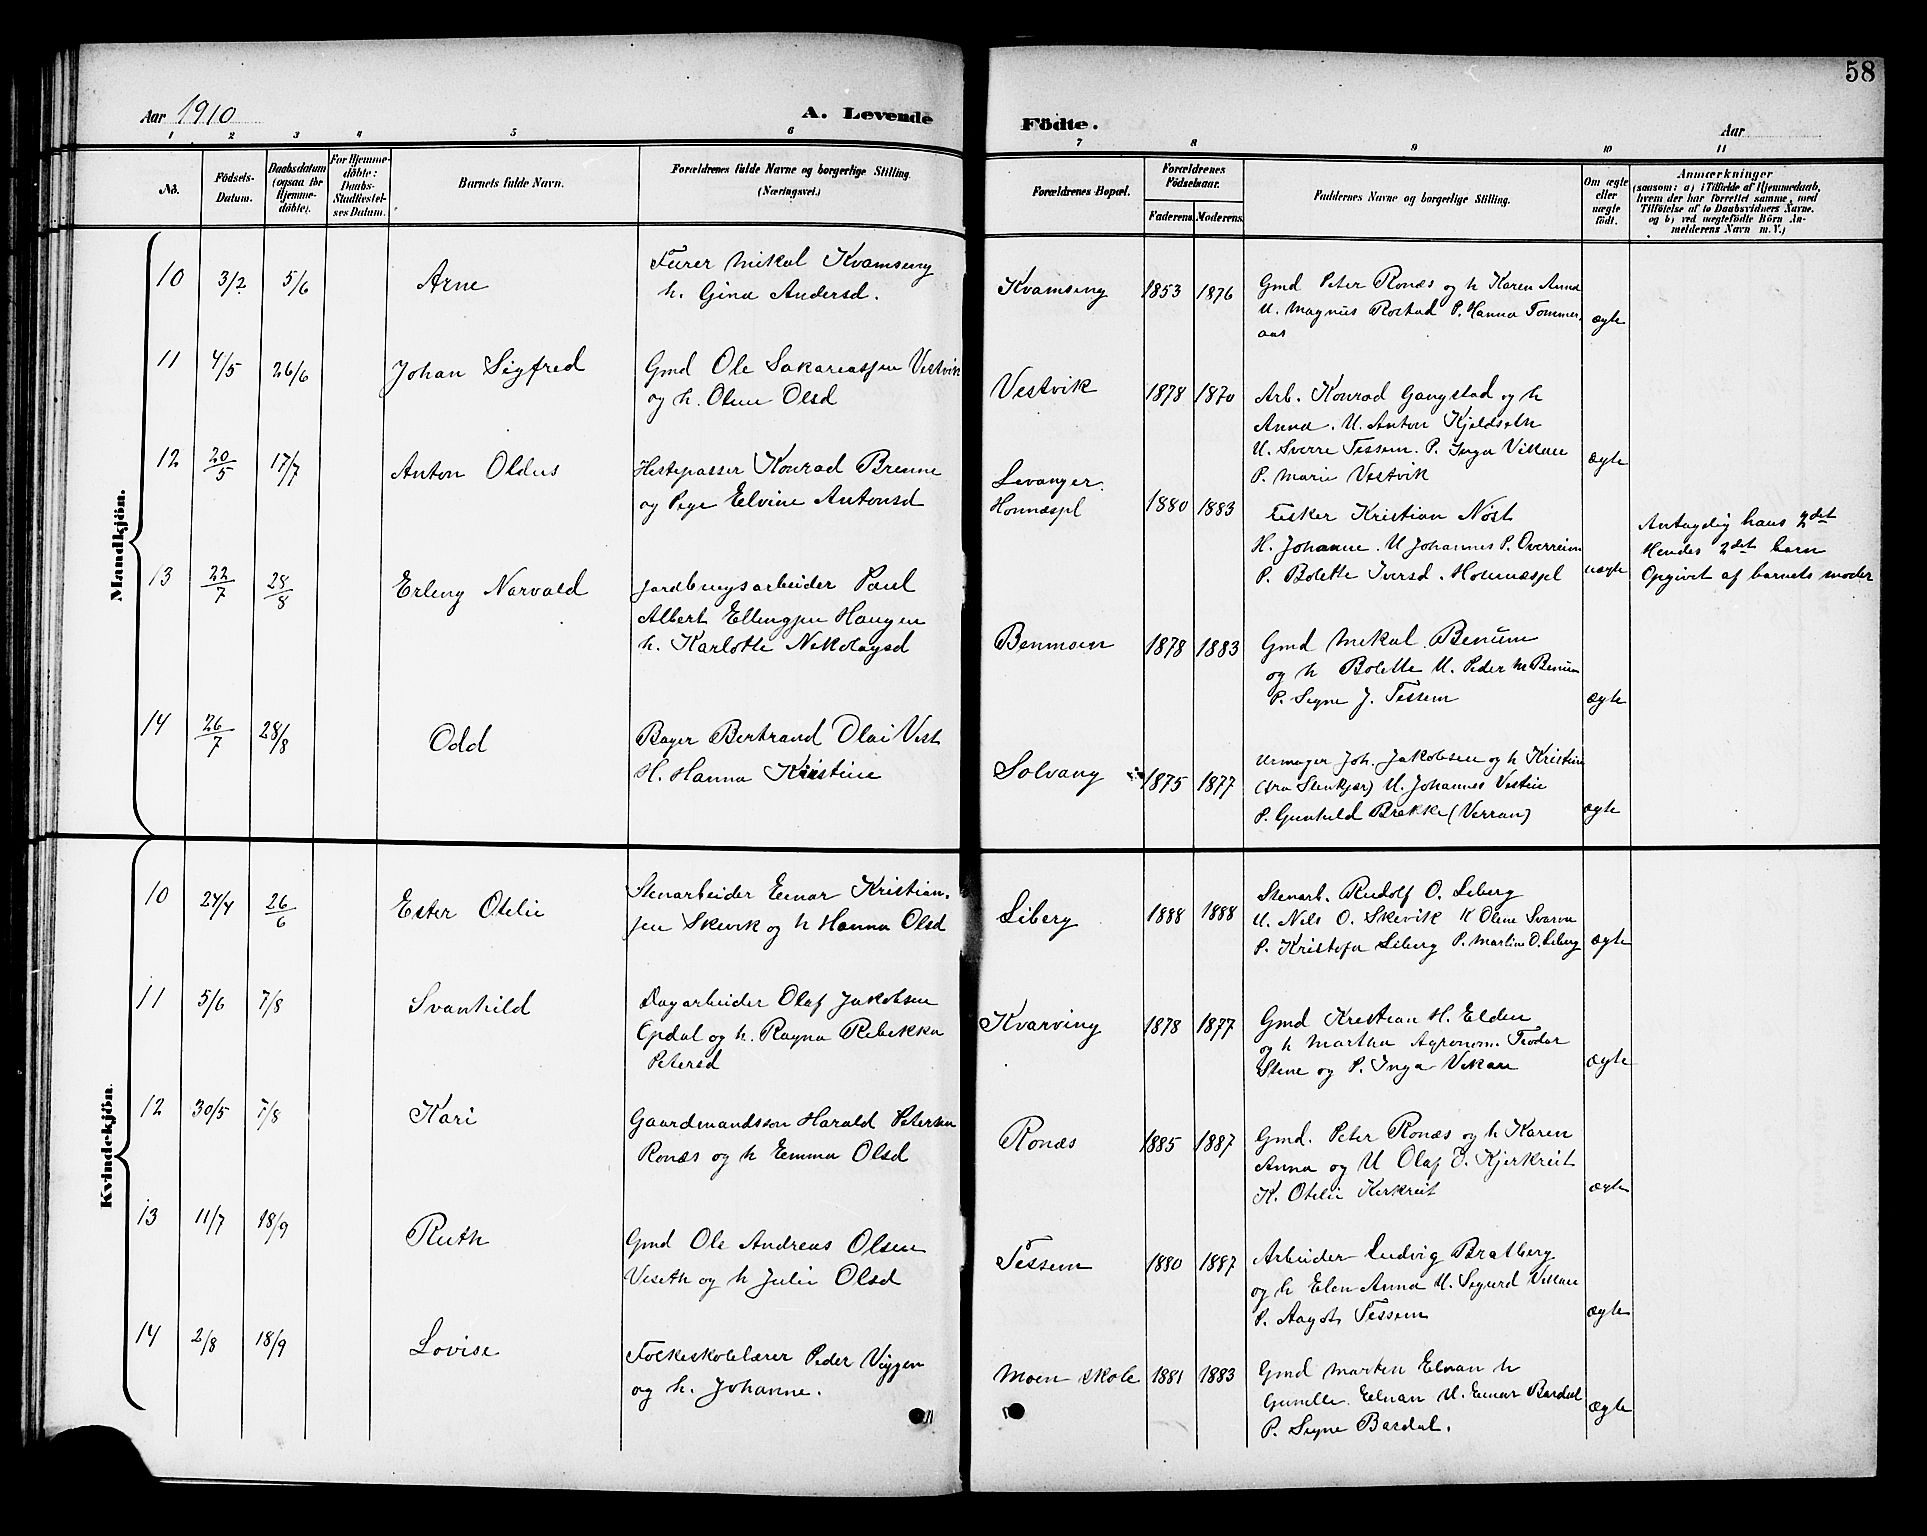 58
Aar 1910
A. Levende
Födte.
Aar
1 2 3 4 5 6 7 8 9 10 11
No.
Födsels-
Datum.
Daabsdatum
(ogsaa for
Hjemme-
döbte).
For Hjemme-
döbte:
Daabs-
Stadfæstel-
ses Datum.
Barnets fulde Navn.
Forældrenes fulde Navne og borgerlige Stilling.
(Næringsvei.)
Forældrenes Bopæl.
Forældrenes
Födselsaar.
Faderens.
Moderens.
Faddernes Navne og borgerlige Stilling.
Om ægte
eller
uægte
födt.
Anmærkninger
(saasom: a) i Tilfælde af Hjemmedaab,
hvem der har forrettet samme, med
Tilföielse af to Daabsvidners Navne.
og b) ved uægtefödte Börn An-
melderens Navn m. V.)
Mandkjön.
10 3/2 5/6 Arne
Furer Mikal Kvamseng
h. Gina Andersd.
Kvamseng 1853 1876
Gmd Peter Ronæs og h Karen Anna
U. Magnus Rostad P. Hanna Tommer.
aas
ægte
11 4/5 26/6 Johan Sigfred
Gmd Ole Sakariassen Vestvik
og h. Oline Olsd
Vestvik 1878 1870
Arb. Konrad Gangstad og h
Anna. U. Anton Kjeldseth
U. Sverre Tessem. P. Inga Vikan
P. Marie Vestvik
ægte
12 20/5 17/7 Anton Oldus
Hestepasser Konrad Brenne
og Pige Elvine Antonsd
Levanger.
Honnæspl 1880 1883
Fisker Kristian Nøst
H. Johanne. U Johannes P. Overreim
P. Bolette Iversd. Honnæspl
uægte
Antagelig hans 2det
Hendes 2det barn
Opgivet af barnets moder
13 22/7 28/8 Erling Norvald
Jordbrugsarbeider Paul
Albert Ellingsen Haugen
h. Karlotte Nikolaysd
Benmoen 1878 1883
Gmd Mikal Benum
og h Bolette U. Peder M Benum
P. Signe J. Tessem
ægte
14 26/7 28/8 Odd
Bager Bertrand Olai Vist
H. Hanna Kristine
Solvang 1875 1877
Urmager Joh. Jakobsen og h Kristin
(fra Stenkjær) U. Johannes Vestin
P. Gunhild Brække (Verran)
ægte
Kvindekjön.
10 24/4 26/6 Ester Otelie
Stenarbeider Einar Kristian.
sen Skevik og h Hanna Olsd
Liberg 1888 1888
Stenarb. Rudolf O. Liberg
U. Nils O. Skevik K Oline Svarva
P. Kristofa Liberg P. Martine O. Liberg
ægte
11 5/6 7/8 Svanhild
Dagarbeider Olaf Jakobsen
Opdal og h. Ragna Rebekka
Petersd
Kvarving 1878 1877
Gmd Kristian H. Elden
og h Martha Agronom. Teodor
Stene og P. Inga Vikan
ægte
12 30/5 7/8 Kari
Gaardmandssøn Harald Petersen
Ronæs og h Emma Olsd
Ronæs 1885 1887
Gmd. Peter Ronæs og h Karen
Anna og U Olaf O. Kjerkreit
K. Otelie Kerkreit
ægte
13 11/7 18/9 Ruth
Gmd Ole Andreas Olsen
Viseth og h Julie Olsd
Tessem 1880 1887
Arbeider Ludvig Bratberg
og h Elen Anna U. Sigurd Vikan
P. Aagot Tessem
ægte
14 2/8 18/9 Lovise
Folkeskolelærer Peder Viggen
og h. Johanne.
Moen skole 1881 1883
Gmd Marten Elnan h
Gunille Elnan U. Einar Bardal
P. Signe Bardal.
ægte